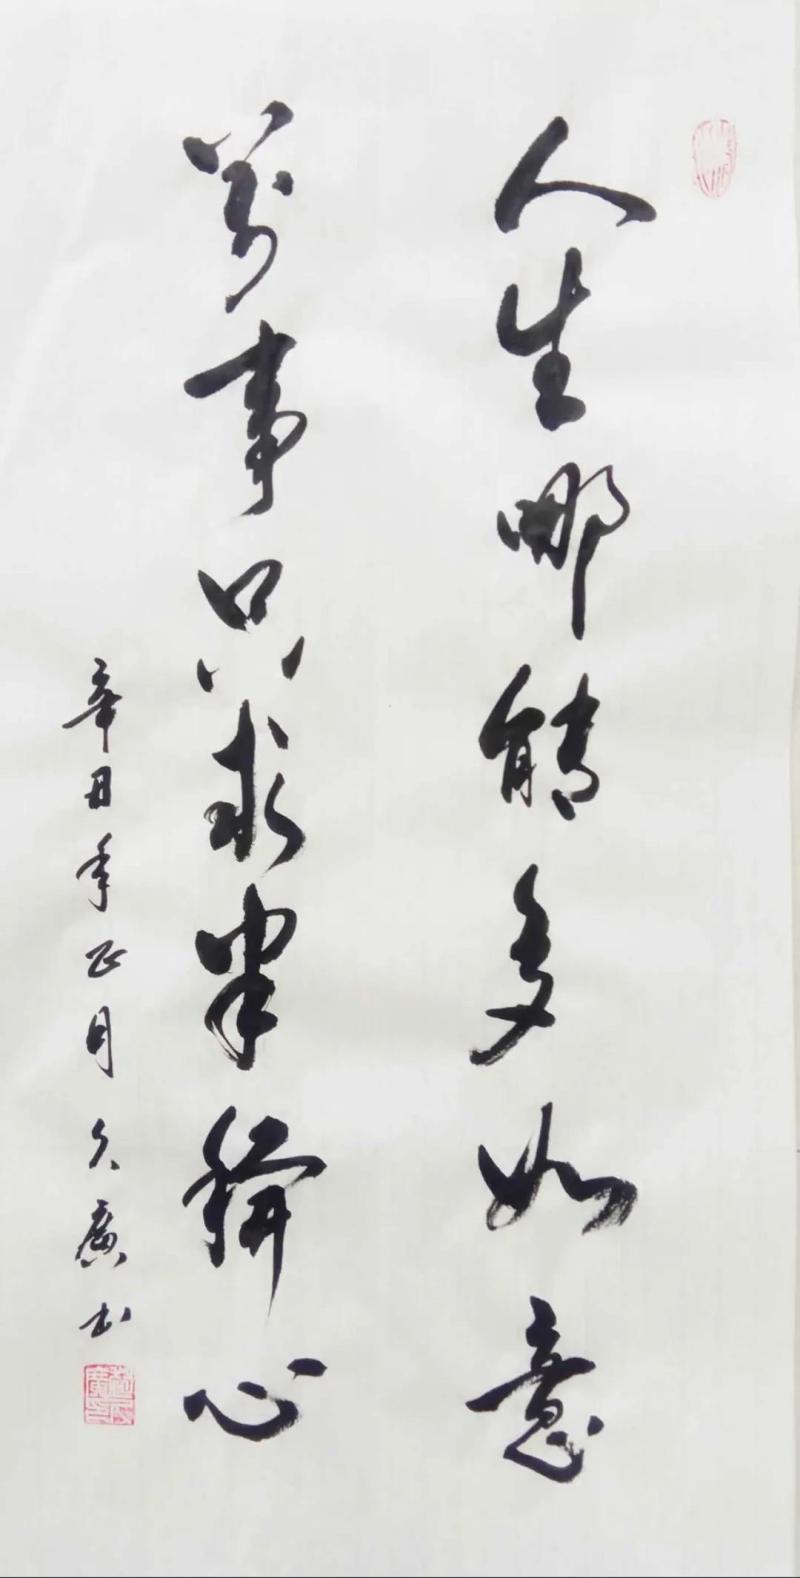 人生哪能多如意
萬事只求半稱心
辛丑年正月久廣书